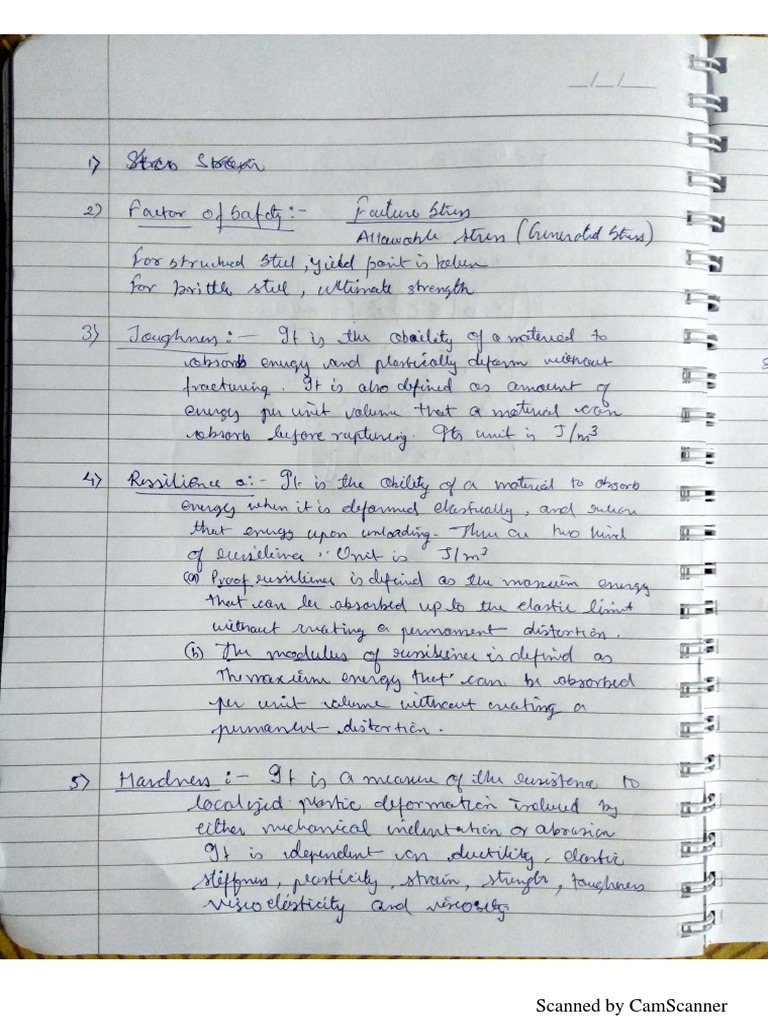 __/__/____
1)
2) Factor of Safety :- Failure Stress
Allowable stress (Generated Stress)
For structured steel, yield point is taken
For brittle steel, ultimate strength
3) Toughness :- It is the ability of a material to
absorb energy and plastically deform without
fracturing. It is also defined as amount of
energy per unit volume that a material can
absorb before rupturing. Its unit is J/m³
4) Ressilience :- It is the ability of a material to absorb
energy when it is deformed elastically, and
that energy upon unloading. two kind
of Unit is J/m³
(a) Proof resilience is defined as the energy
that can be absorbed up to the elastic limit
without creating a permanent distortion.
(b) The modulus of is defined as
The energy that can be absorbed
per unit volume without creating a
permanent distortion.
5) Hardness :- It is a measure of the resistence to
localized plastic deformation induced by
either mechanical indentation or abrasion
It is dependent on ductility, elastic
stiffness, plasticity, strain, strength, toughness
viscoelasticity and viscosity
Scanned by CamScanner